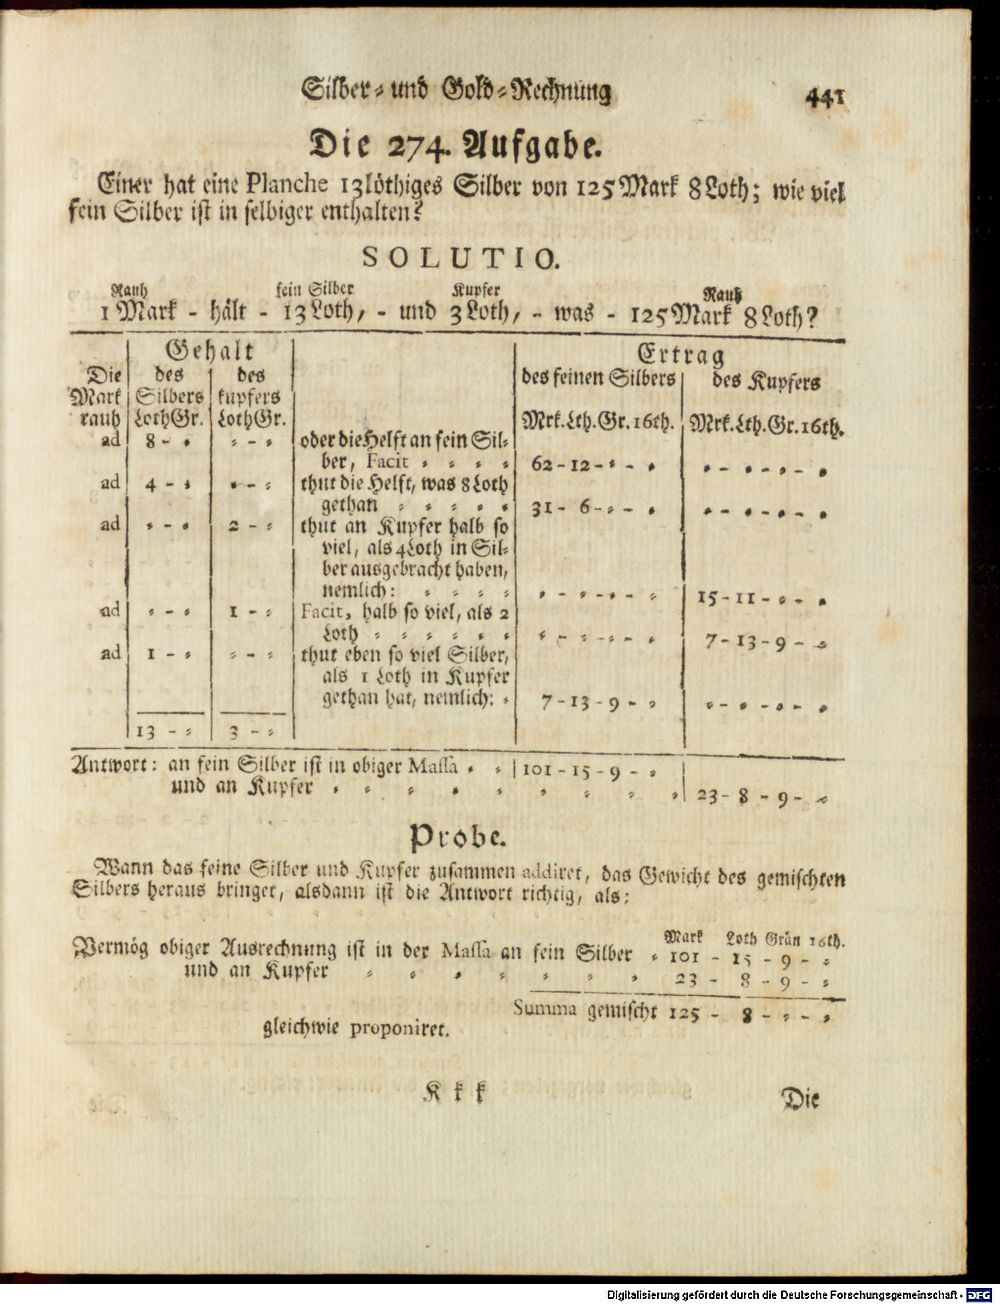 Silber- und Gold-Rechnung 441
Die 274. Aufgabe.
Einer hat eine Planche 13löthiges Silber von 125 Mark 8 Loth; wie viel
fein Silber ist in selbiger enthalten?
SOLUTIO.
Rauh fein Silber Kupfer Rauh
1 Mark - hält - 13 Loth, - und 3 Loth, - was - 125 Mark 8 Loth?
Gehalt Ertrag
Die des des des feinen Silbers des Kupfers
Mark Silbers kupfers
rauh Loth Gr. Loth Gr. Mrk. Lth. Gr. 16th. Mrk. Lth. Gr. 16th.
ad 8 - = = - = oder die Helft an fein Sil-
ber, Facit = = = = 62 - 12 - = - = = - = - = - =
ad 4 - = = - = thut die Helft, was 8 Loth
gethan = = = = = 31 - 6 - = - = = - = - = - =
ad = - = 2 - = thut an Kupfer halb so
viel, als 4 Loth in Sil-
ber ausgebracht haben,
nemlich: = = = = = - = - = - = 15 - 11 - = - =
ad = - = 1 - = Facit, halb so viel, als 2
Loth = = = = = = = - = - = - = 7 - 13 - 9 - =
ad 1 - = = - = thut eben so viel Silber,
als 1 Loth in Kupfer
gethan hat, nemlich: = 7 - 13 - 9 - = = - = - = - =
13 - = 3 - =
Antwort: an fein Silber ist in obiger Massa = = 101 - 15 - 9 - =
und an Kupfer = = = = = = = = = 23 - 8 - 9 - =
Probe.
Wann das feine Silber und Kupfer zusammen addiret, das Gewicht des gemischten
Silbers heraus bringet, alsdann ist die Antwort richtig, als:
Mark Loth Grän 16th.
Vermög obiger Ausrechnung ist in der Massa an fein Silber = 101 - 15 - 9 - =
und an Kupfer = = = = = = = 23 - 8 - 9 - =
Summa gemischt 125 - 8 - = - =
gleichwie proponiret.
K k k Die
Digitalisierung gefördert durch die Deutsche Forschungsgemeinschaft - DFG